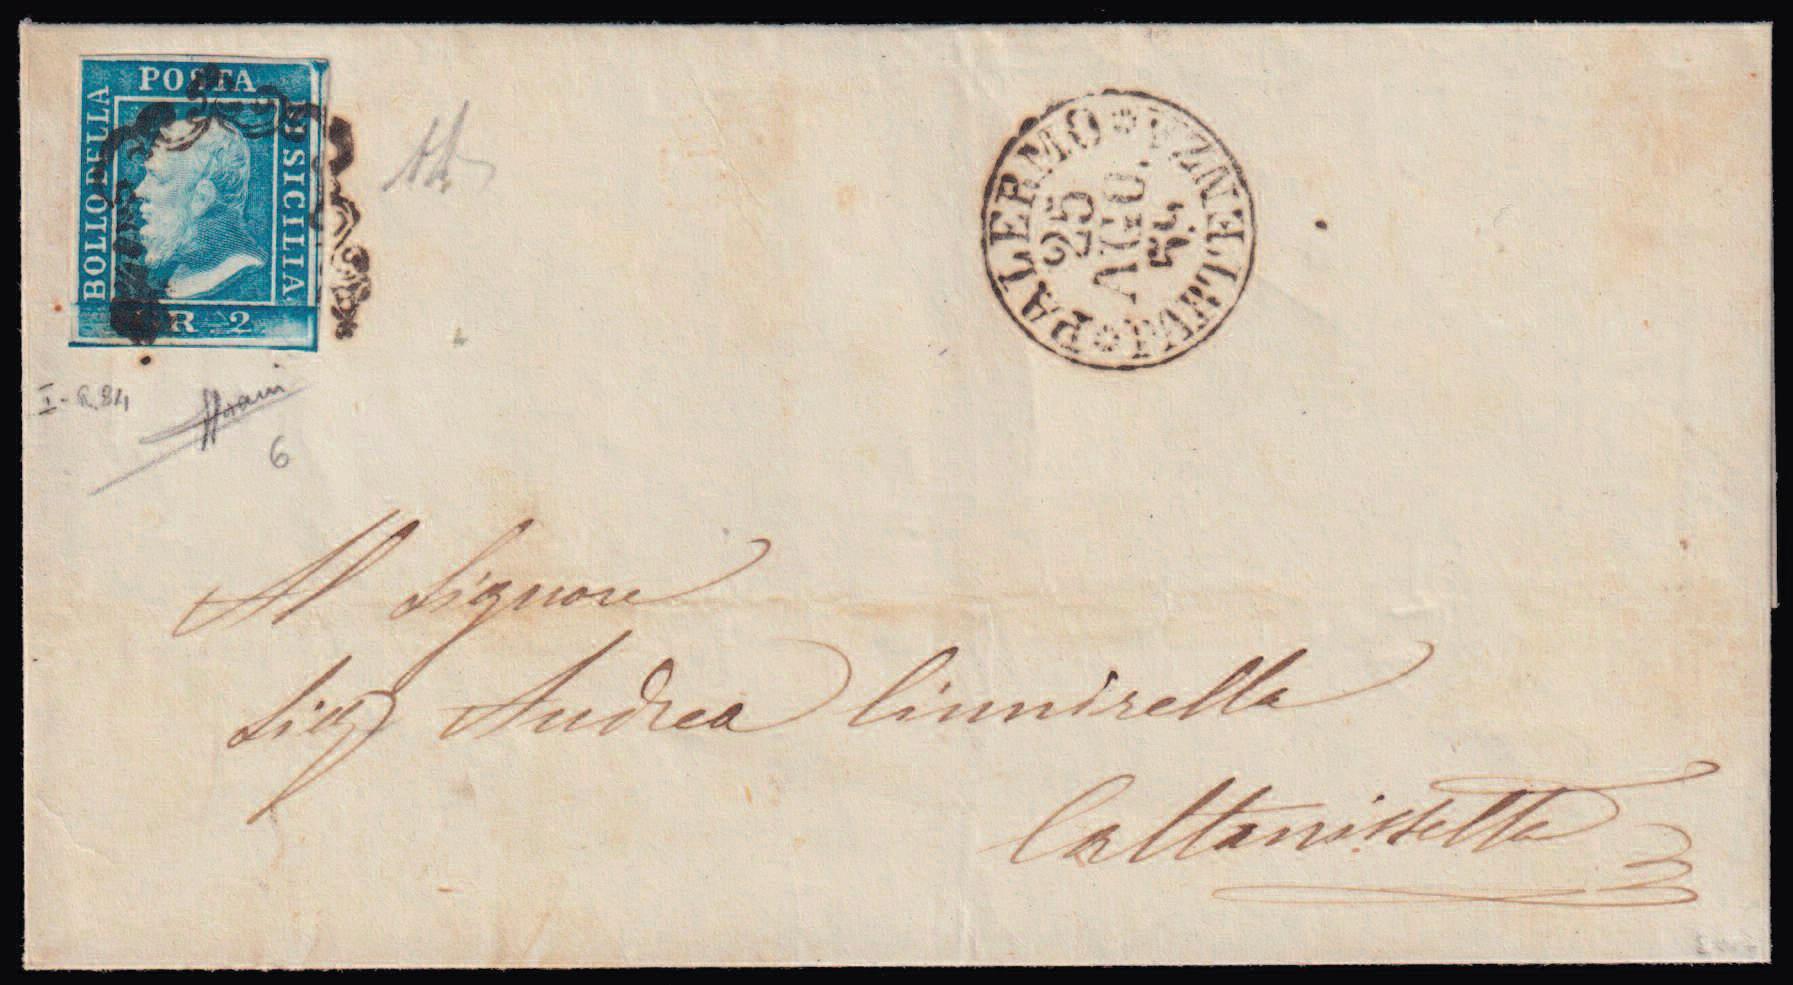 POSTA
BOLLO DELLA
DI SICILIA
GR 2
PALERMO
PARTENZA
25
AGO.
59
I - R. 84
6
Al Signore
Sig Andrea Cinnirella
Caltanissetta